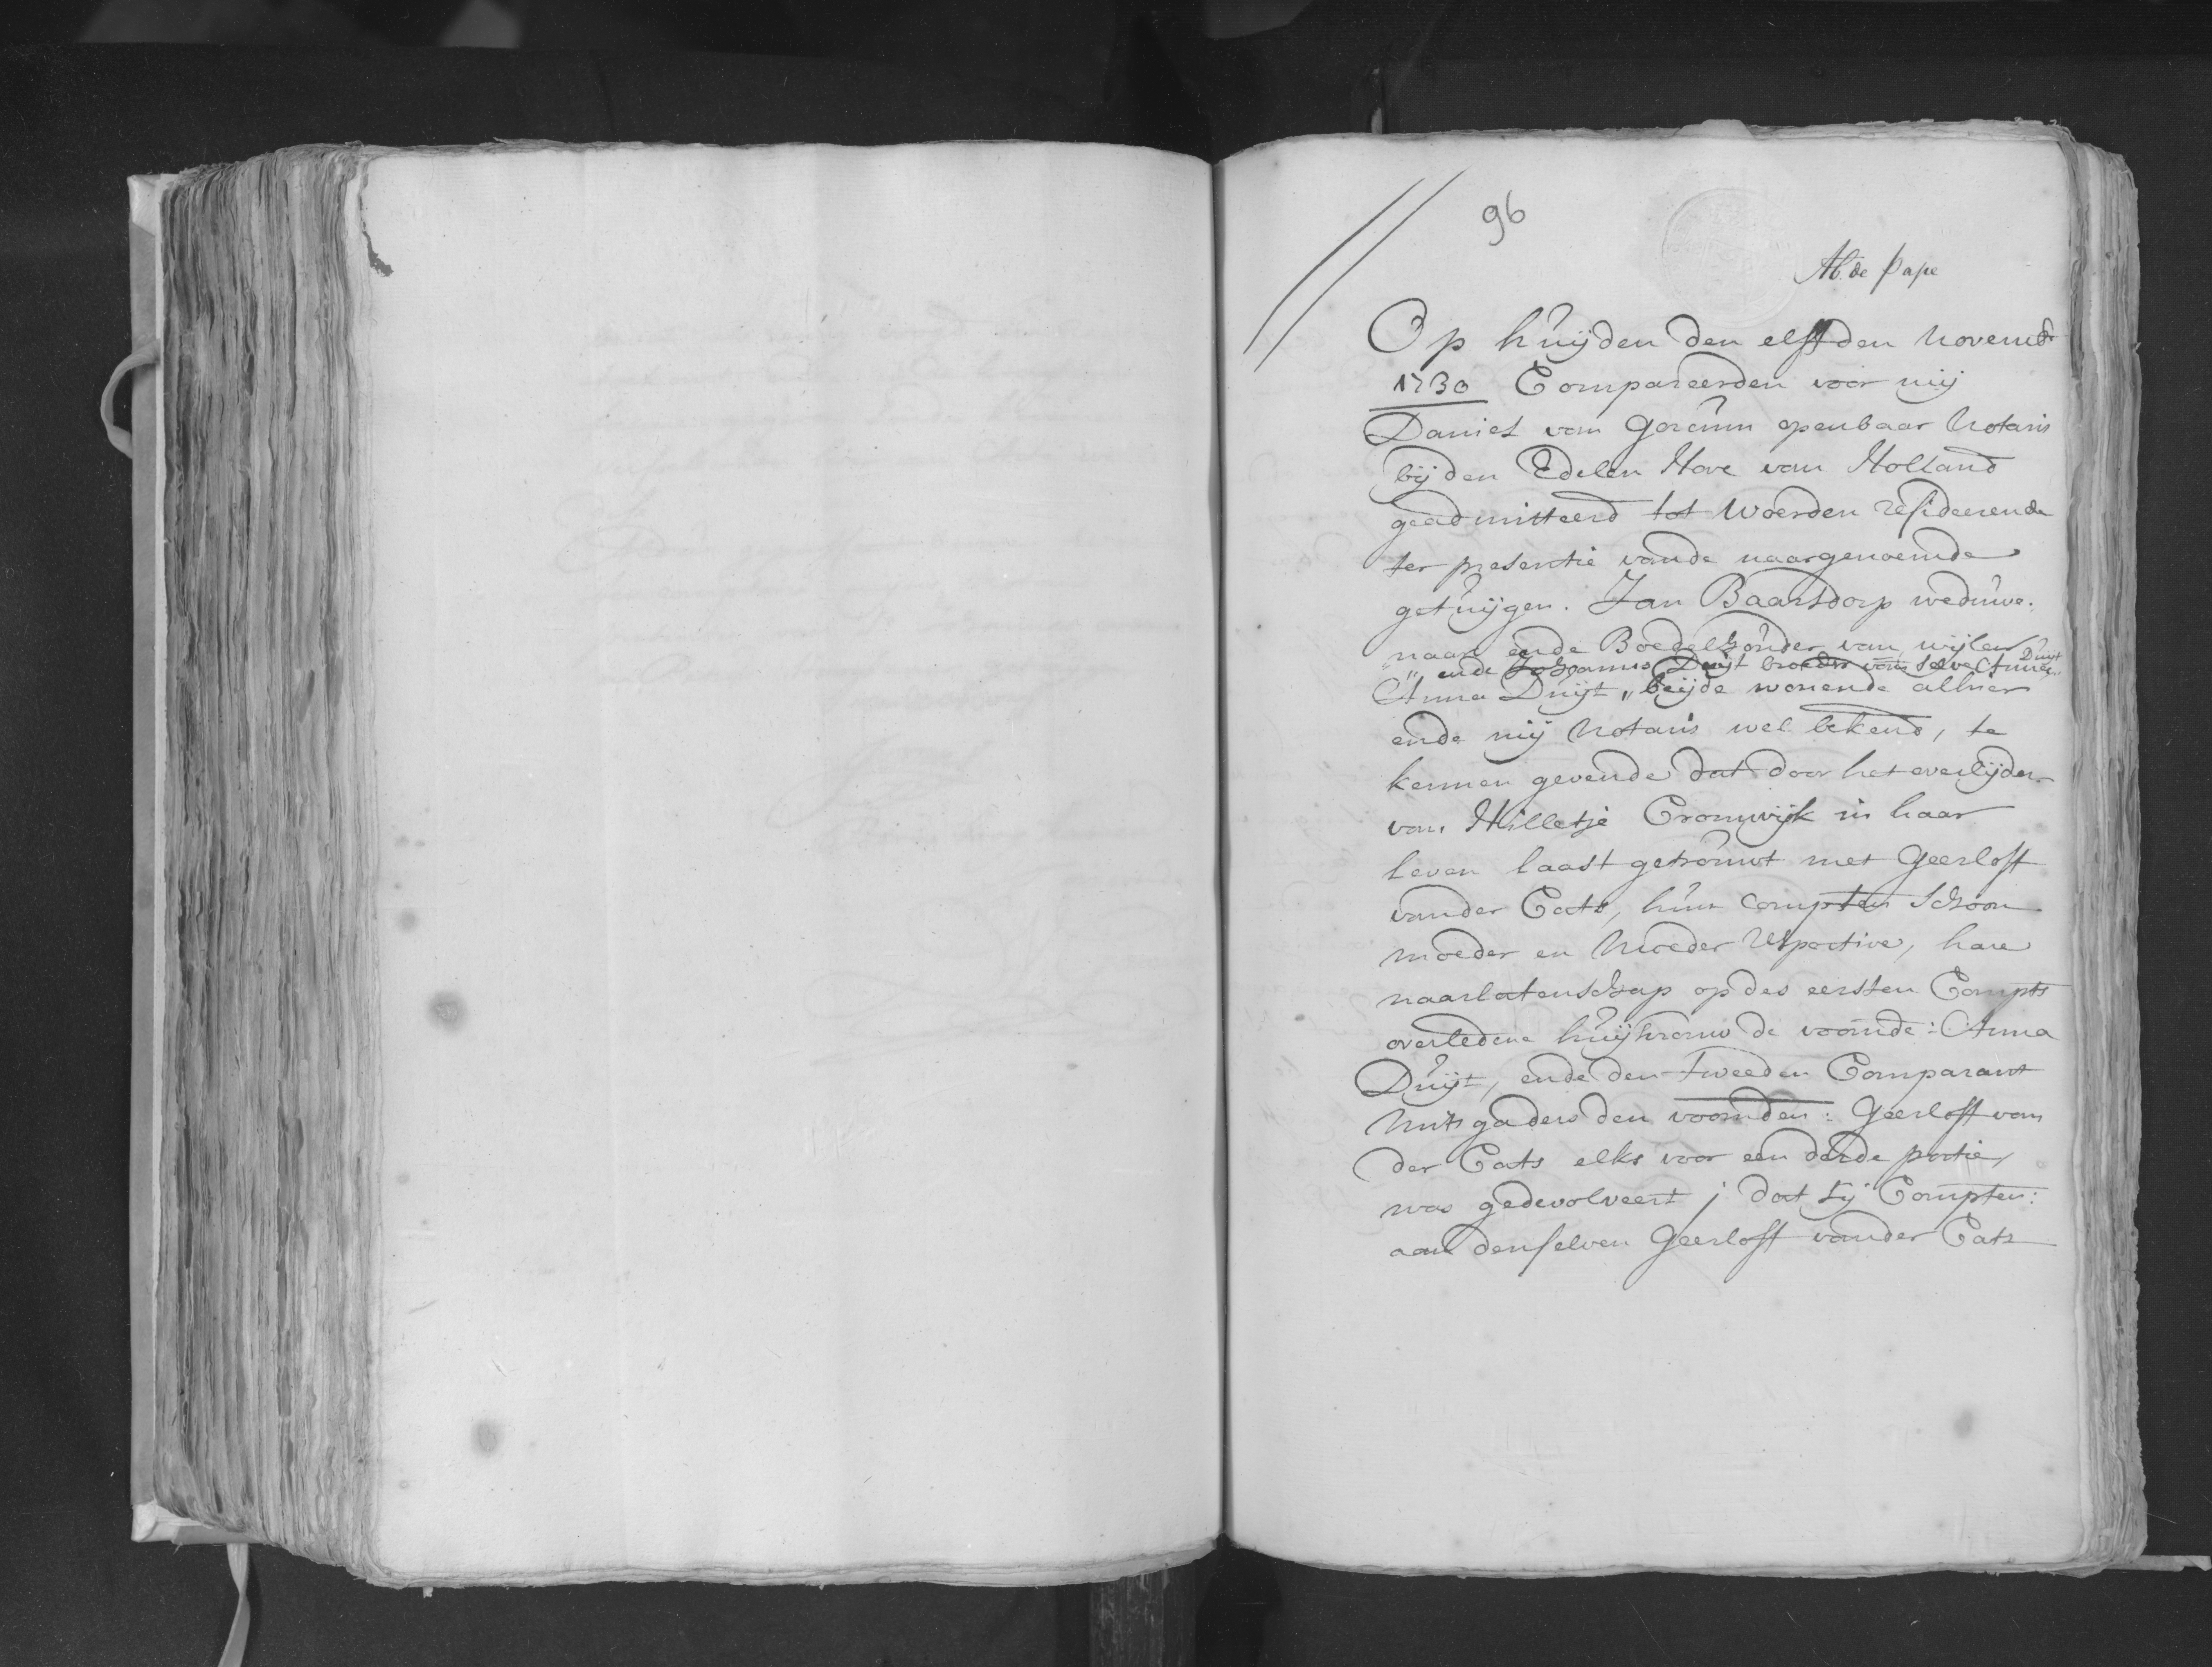 96
Ab. de Pape
Op huijden den elfden novembr
1730 Compareerden voor mij
Daniel van Gorcum openbaar Notaris
bij den Edelen Hove van Holland
geadmitteerd tot Woerden resideerende
ter presentie vande naargenoemde
getuijgen. Jan Baarsdorp weduwe-
naar ende Boedelhouder van wijlen
„ ende Johannes Duijt broeder vans selve Anna Duijt
Anna Duijt „ beijde wonende alhier
ende mij Notaris wel bekend, te
kennen gevende dat door het overlijden
van Hilletje Cromwijk in haar
leven laast getrouwt met Geerloff
vander Cats, hun compten schoon
moeder en moeder respective, hare
naarlatenschap op des eersten Compts
overledene huijsvrouw de voornde: Anna
Duijt, ende den tweeden Comparant
mitsgaders den voornden: Geerloff van
der Cats elks voor een derde portie,
was gedevolveert; dat sij Compten:
aan denselven Geerloff vander Cats